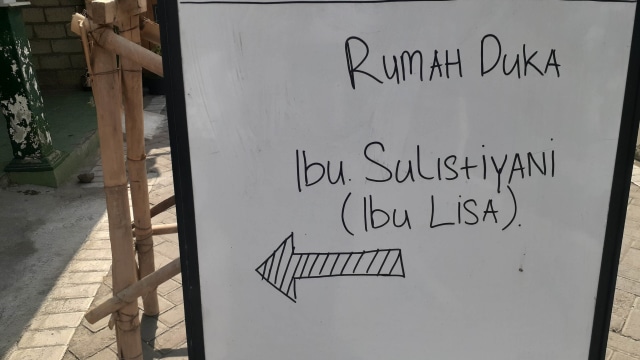 RUMAH DUKA
Ibu. SULIStiYANi
(Ibu LiSA).